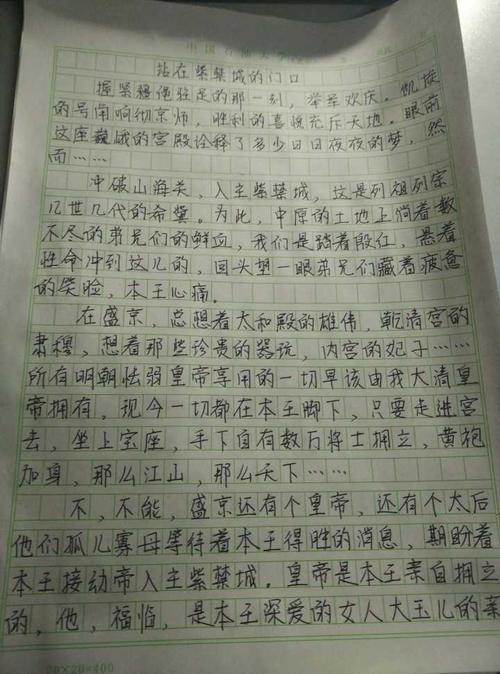 中国石油大学
站在紫禁城的门口
握紧缰绳驻足的那一刻，举军欢庆。凯旋
的号角响彻京师，胜利的喜悦充斥天地。眼前
这座巍峨的宫殿诠释了多少日日夜夜的梦，然
而……
冲破山海关，入主紫禁城，这是列祖列宗
几世几代的希冀。为此，中原的土地上倘着数
不尽的弟兄们的鲜血，我们是踏着殷红，悬着
性命冲到这儿的，回头望一眼弟兄们藏着疲惫
的笑脸，本王心痛。
在盛京，总想着太和殿的雄伟，乾清宫的
肃穆，想着那些珍贵的器玩，内宫的妃子……
所有明朝怯弱皇帝享用的一切早该由我大清皇
帝拥有。现今一切都在本王脚下，只要走进宫
去，坐上宝座，手下自有数万将士拥立，黄袍
加身，那么江山，那么天下……
不，不能，盛京还有个皇帝，还有个太后
他们孤儿寡母等待着本王得胜的消息，期盼着
本王接幼帝入主紫禁城。皇帝是本王亲自拥立
的，他，福临，是本王深爱的女人大玉儿的亲
20×20=400